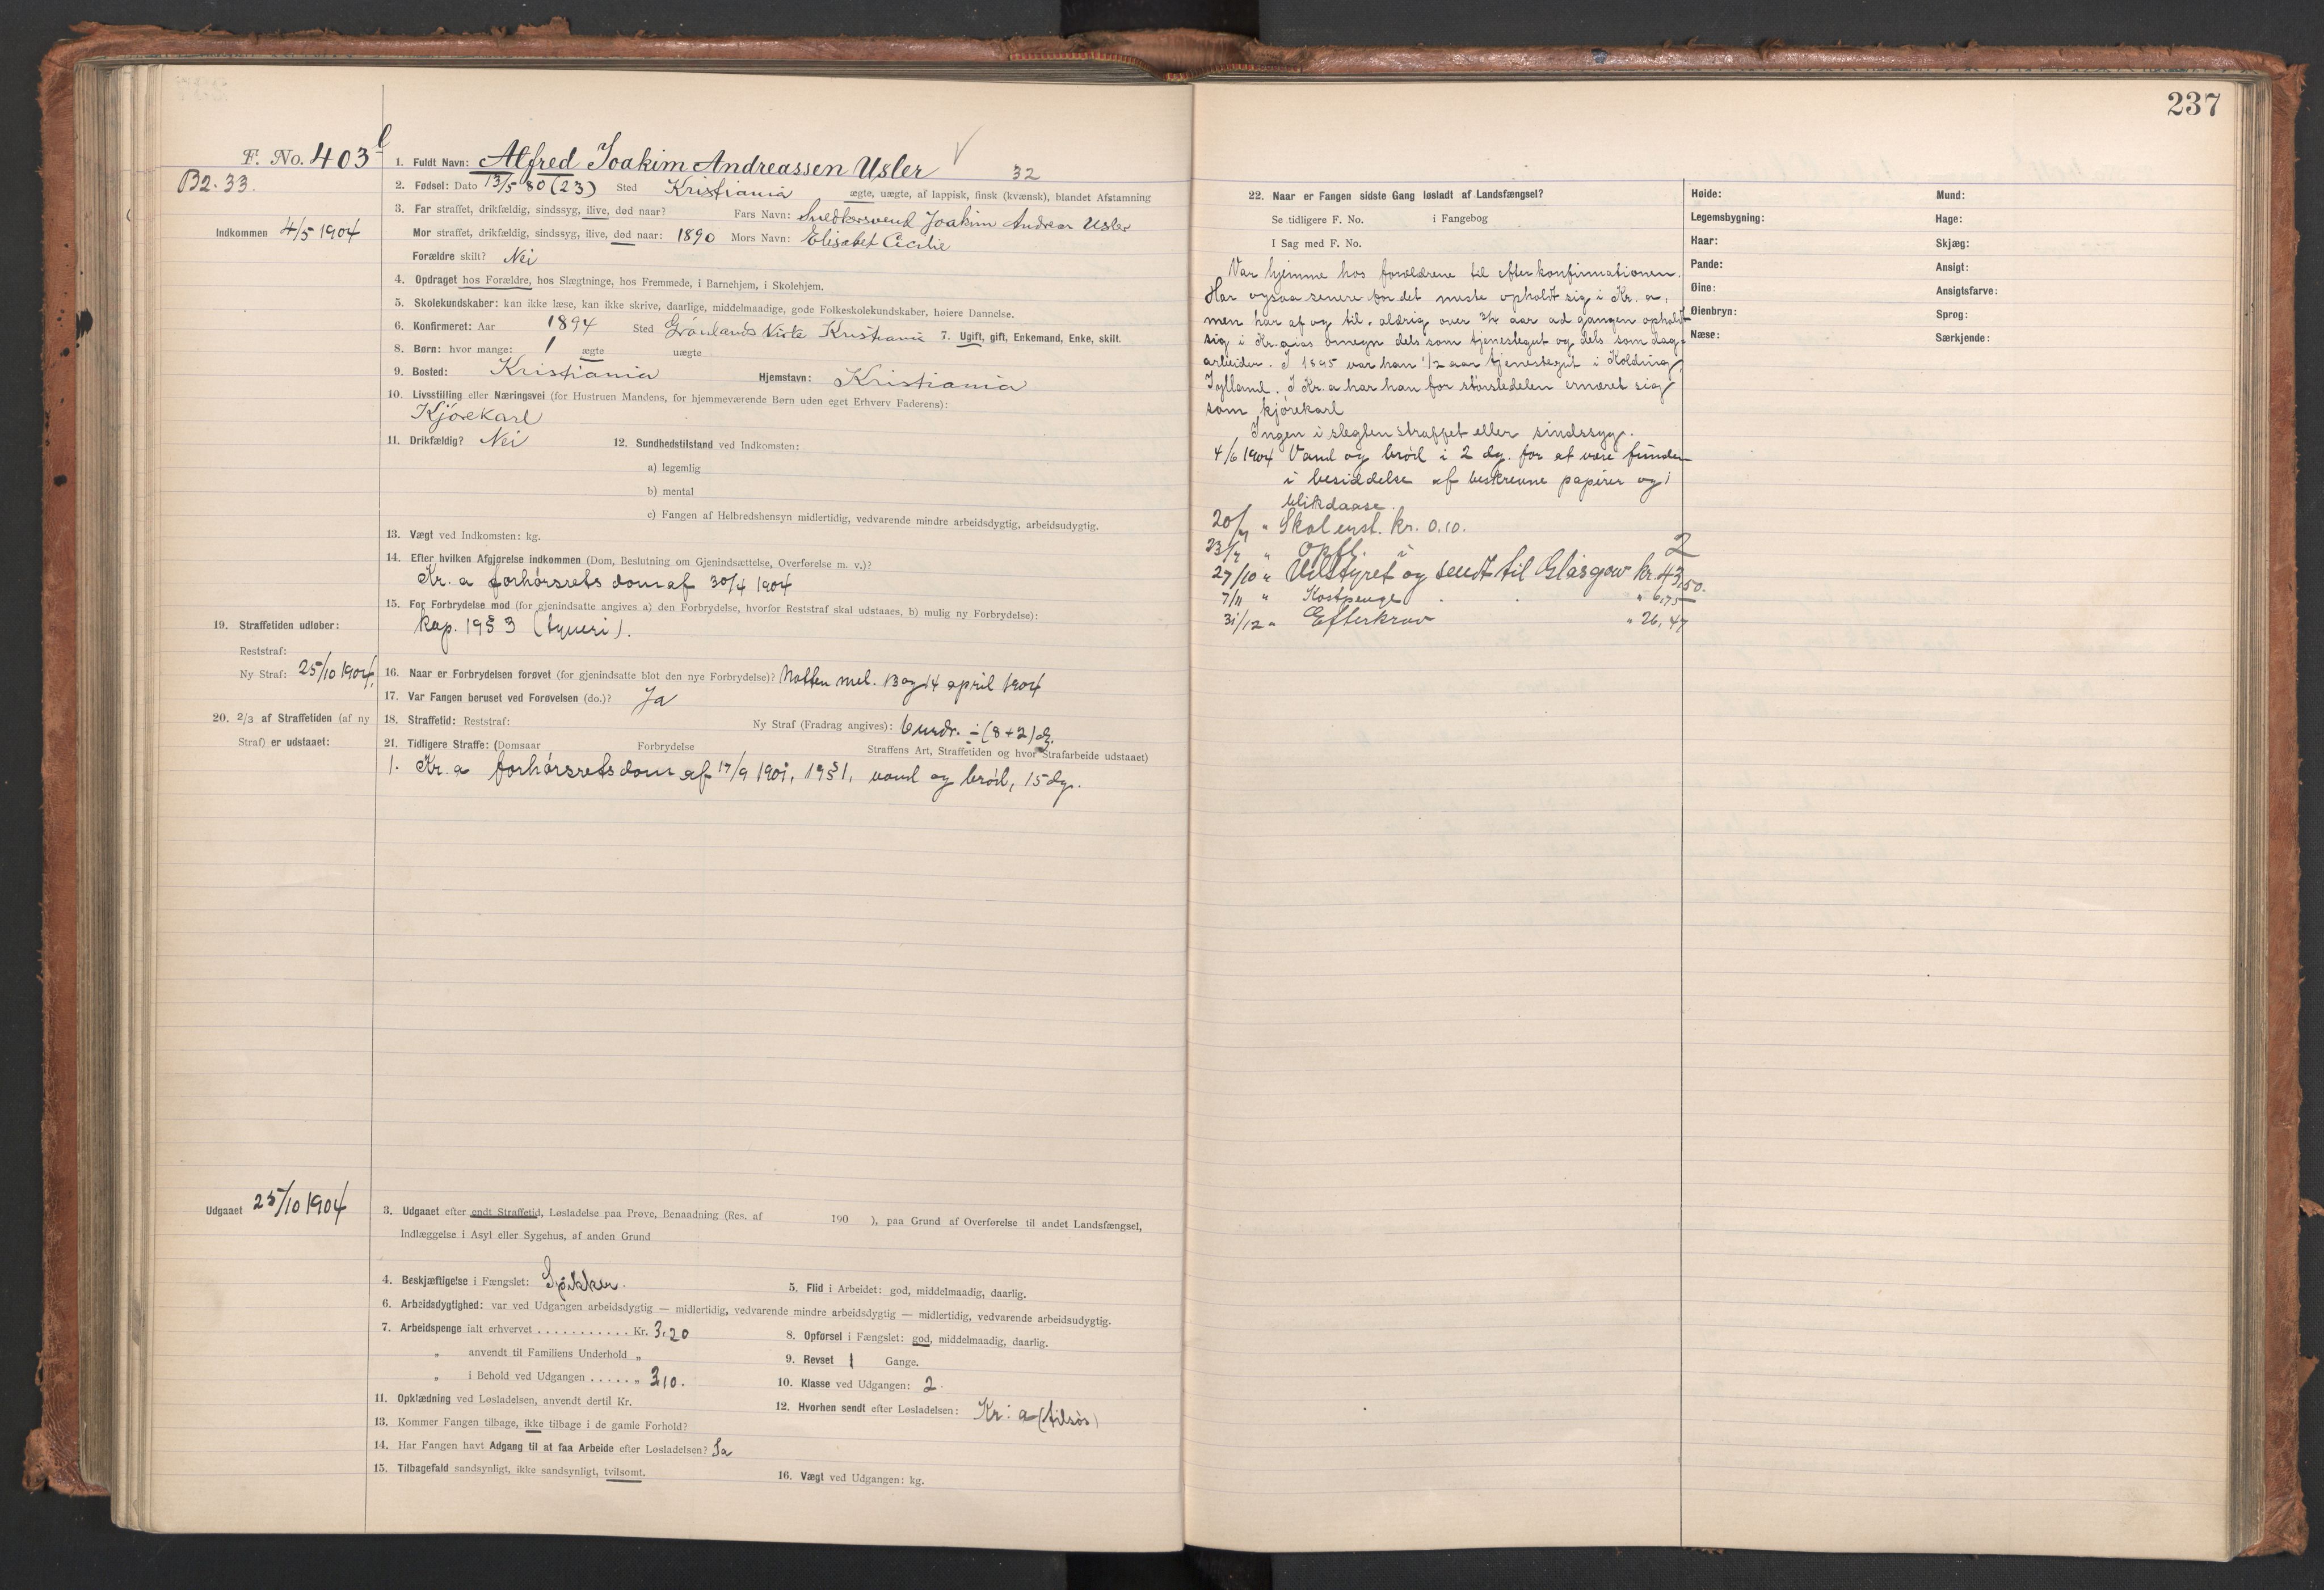 237
F. No. 403 b
B2. 33.
1. Fuldt Navn: Alfred Joakim Andreassen Usler
32
2. Fødsel: Dato 13/5 80 (23) Sted Kristiania ægte, uægte, af lappisk, finsk (kvænsk), blandet Afstamning
Indkommen 4/5 1904
3. Far straffet, drikfældig, sindssyg, ilive, død naar? Fars Navn: Joakim Andreas Usler
Mor straffet, drikfældig, sindssyg, ilive, død naar: 1890 Mors Navn: Elisabet Cecilie
Forældre skilt? Nei
4. Opdraget hos Forældre, hos Slægtninge, hos Fremmede, i Barnehjem, i Skolehjem.
5. Skolekundskaber: kan ikke læse, kan ikke skrive, daarlige, middelmaadige, gode Folkeskolekundskaber, høiere Dannelse.
6. Konfirmeret: Aar 1894 Sted Grønlands Kirke Kristiania 7. Ugift, gift, Enkemand, Enke, skilt.
8. Børn: hvor mange: 1 ægte uægte
9. Bosted: Kristiania Hjemstavn: Kristiania
10. Livsstilling eller Næringsvei (for Hustruen Mandens, for hjemmeværende Børn uden eget Erhverv Faderens):
Kjørekarl
11. Drikfældig? Nei 12. Sundhedstilstand ved Indkomsten:
a) legemlig
b) mental
c) Fangen af Helbredshensyn midlertidig, vedvarende mindre arbeidsdygtig, arbeidsudygtig.
13. Vægt ved Indkomsten: kg.
14. Efter hvilken Afgjørelse indkommen (Dom, Beslutning om Gjenindsættelse, Overførelse m. v.)?
Kr. a forhørsrets dom af 30/4 1904
15. For Forbrydelse mod (for gjenindsatte angives a) den Forbrydelse, hvorfor Reststraf skal udstaaes, b) mulig ny Forbrydelse):
Kap. 19 § 3 (tyveri).
19. Straffetiden udløber:
Reststraf:
Ny Straf: 25/10 1904.
16. Naar er Forbrydelsen forøvet (for gjenindsatte blot den nye Forbrydelse)? Natten mel. 13 og 14 april 1904
17. Var Fangen beruset ved Forøvelsen (do.)? Ja
20. 2/3 af Straffetiden (af ny
Straf) er udstaaet:
18. Straffetid: Reststraf: Ny Straf (Fradrag angives): 6 mdr. ÷ (8+2) dg.
21. Tidligere Straffe: (Domsaar Forbrydelse Straffens Art, Straffetiden og hvor Strafarbeide udstaaet)
1. Kr. a forhørsrets dom af 17/9 1901, 19 § 1, vand og brød, 15 dg.
Udgaaet 25/10 1904
3. Udgaaet efter endt Straffetid, Løsladelse paa Prøve, Benaadning (Res. af 190 ), paa Grund af Overførelse til andet Landsfængsel,
Indlæggelse i Asyl eller Sygehus, af anden Grund
4. Beskjæftigelse i Fængslet: 5. Flid i Arbeidet: god, middelmaadig, daarlig.
6. Arbeidsdygtighed: var ved Udgangen arbeidsdygtig — midlertidig, vedvarende mindre arbeidsdygtig — midlertidig, vedvarende arbeidsudygtig.
7. Arbeidspenge ialt erhvervet ........... Kr. 3.20 8. Opførsel i Fængslet: god, middelmaadig, daarlig.
„ anvendt til Familiens Underhold „ 9. Revset 1 Gange.
„ i Behold ved Udgangen ..... „ 3,10. 10. Klasse ved Udgangen: 2.
11. Opklædning ved Løsladelsen, anvendt dertil Kr. 12. Hvorhen sendt efter Løsladelsen: Kr. a (tilsøs)
13. Kommer Fangen tilbage, ikke tilbage i de gamle Forhold?
14. Har Fangen havt Adgang til at faa Arbeide efter Løsladelsen? Ja
15. Tilbagefald sandsynligt, ikke sandsynligt, tvilsomt. 16. Vægt ved Udgangen: kg.
22. Naar er Fangen sidste Gang løsladt af Landsfængsel?
Se tidligere F. No. i Fangebog
I Sag med F. No.
Var hjemme hos forældrene til efter konfirmationen.
Har ogsaa senere for det meste opholdt sig i Kr. a,
men har af og til, aldrig over 3/4 aar ad gangen opholdt
sig i Kr.anias omegn dels som tjenestegut og dels som dag-
arbeider. I 1895 var han 1/2 aar tjenestegut i Kolding,
Jylland. I Kr. a har han for størstedelen ernæret sig
som kjørekarl
Ingen i slegten straffet eller sindssyg.
4/6 1904 Vand og brød i 2 dg. for at være funden
i besiddelse af beskrevne papirer og 1
blikdaase.
20/7 „ Skal erst. kr. 0.10.
23/7 „ opfl. i 2
27/10 „ Udstyret og sendt til Glasgow kr. 43,50.
7/11 „ Kostpenge „ 6,75
31/12 „ Efterkrav „ 26,47
Høide: Mund:
Legemsbygning: Hage:
Haar: Skjæg:
Pande: Ansigt:
Øine: Ansigtsfarve:
Øienbryn: Sprog:
Næse: Særkjende: